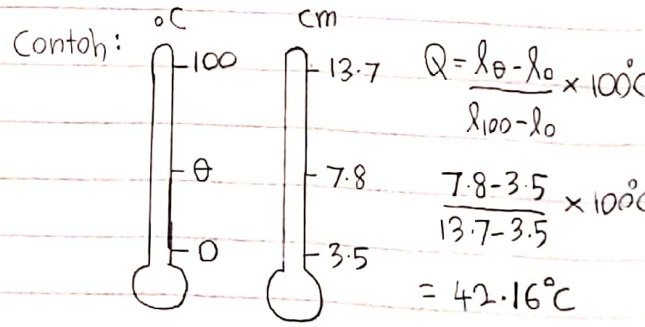 Contoh:
°C
100
θ
0
cm
13.7
7.8
3.5
Q = lθ - l0 / l100 - l0 × 100°C
7.8 - 3.5 / 13.7 - 3.5 × 100°C
= 42.16°C